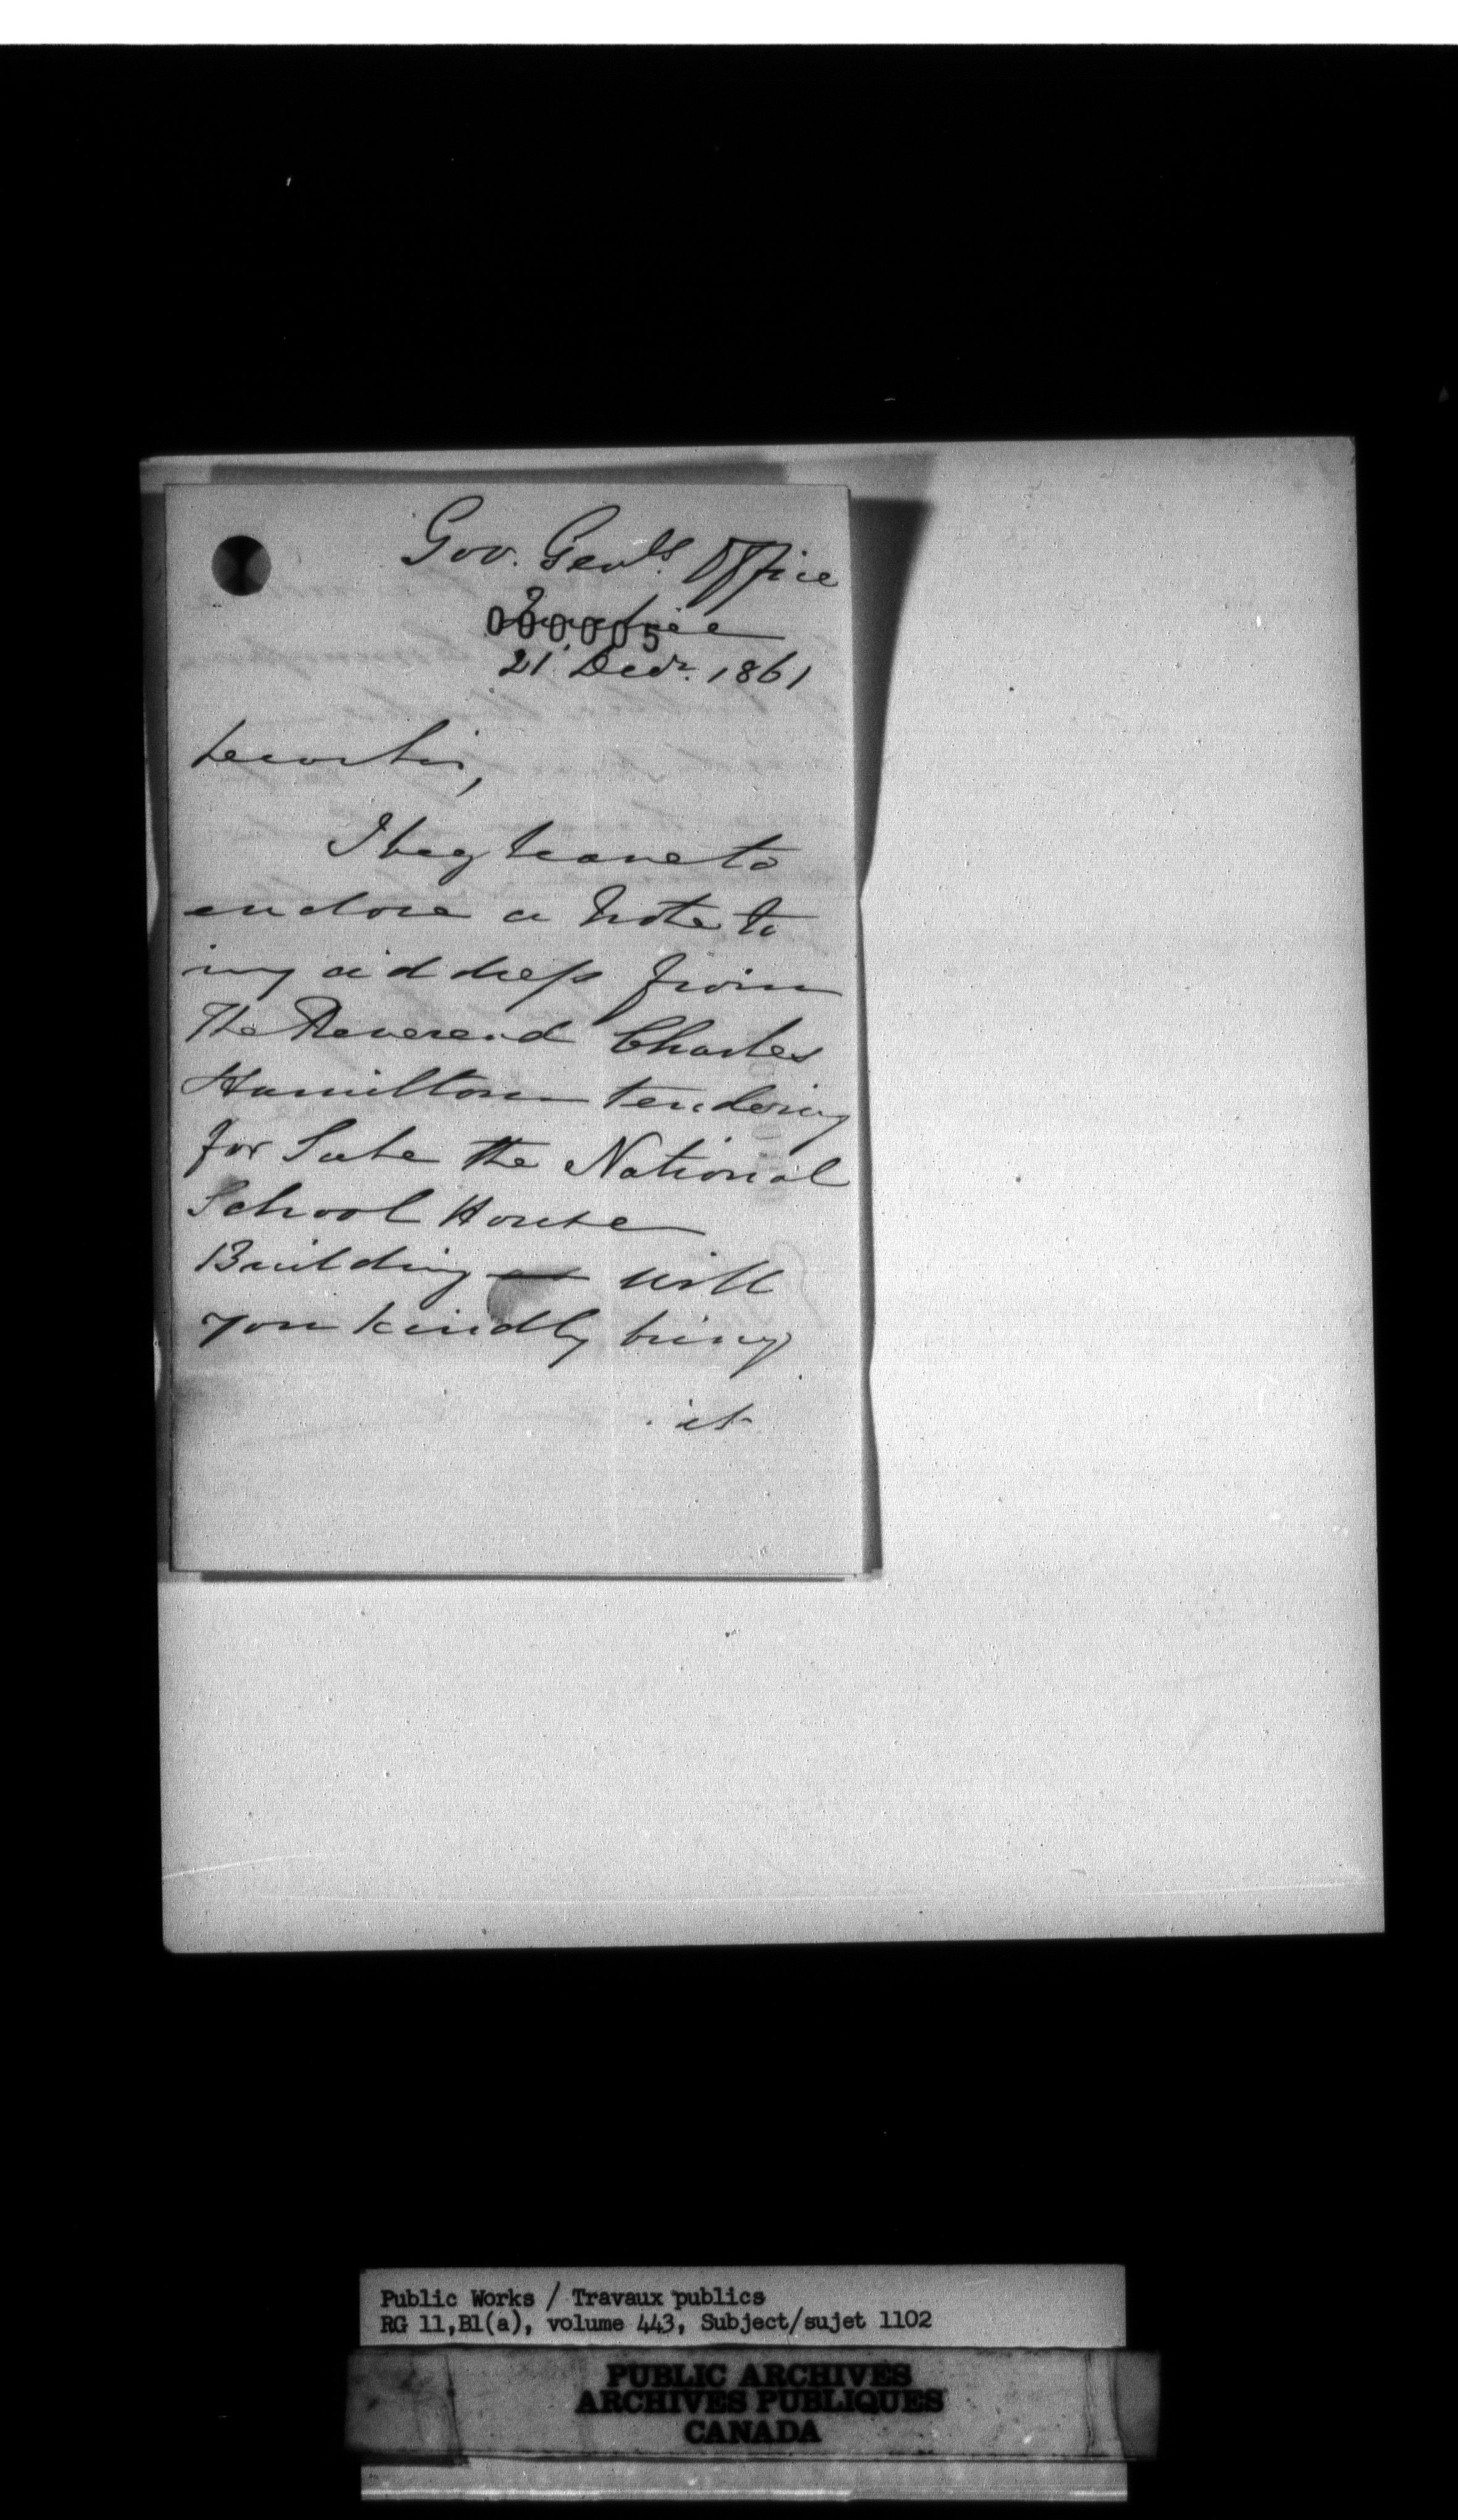 Gov. Genls. Office
Quebec
000005
21 Decr. 1861
Dear Sir,
I beg leave to
enclose a Note to
my address from
The Reverend Charles
Hamilton tendering
for Sale the National
School House
Building will
you kindly bring
it
Public Works / Travaux publics
RG 11,B1(a), volume 443, Subject/sujet 1102
PUBLIC ARCHIVES
ARCHIVES PUBLIQUES
CANADA